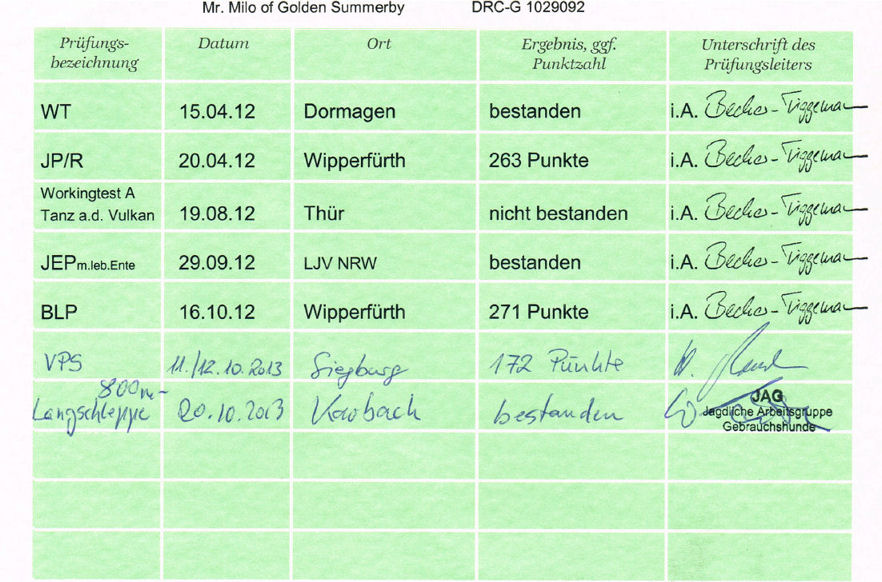 Mr. Milo of Golden Summerby DRC-G 1029092
Prüfungs- Datum Ort Ergebnis, ggf. Unterschrift des
bezeichnung Punktzahl Prüfungsleiters
WT 15.04.12 Dormagen bestanden i.A. Becker-Tiggeman
JP/R 20.04.12 Wipperfürth 263 Punkte i.A. Becker-Tiggeman
Workingtest A
Tanz a.d. Vulkan 19.08.12 Thür nicht bestanden i.A. Becker-Tiggeman
JEPm.leb.Ente 29.09.12 LJV NRW bestanden i.A. Becker-Tiggeman
BLP 16.10.12 Wipperfürth 271 Punkte i.A. Becker-Tiggeman
VPS 11./12.10.2013 Siegburg 172 Punkte
800m-
Langschleppe 20.10.2013 bestanden
JAG
Jagdliche Arbeitsgruppe
Gebrauchshunde